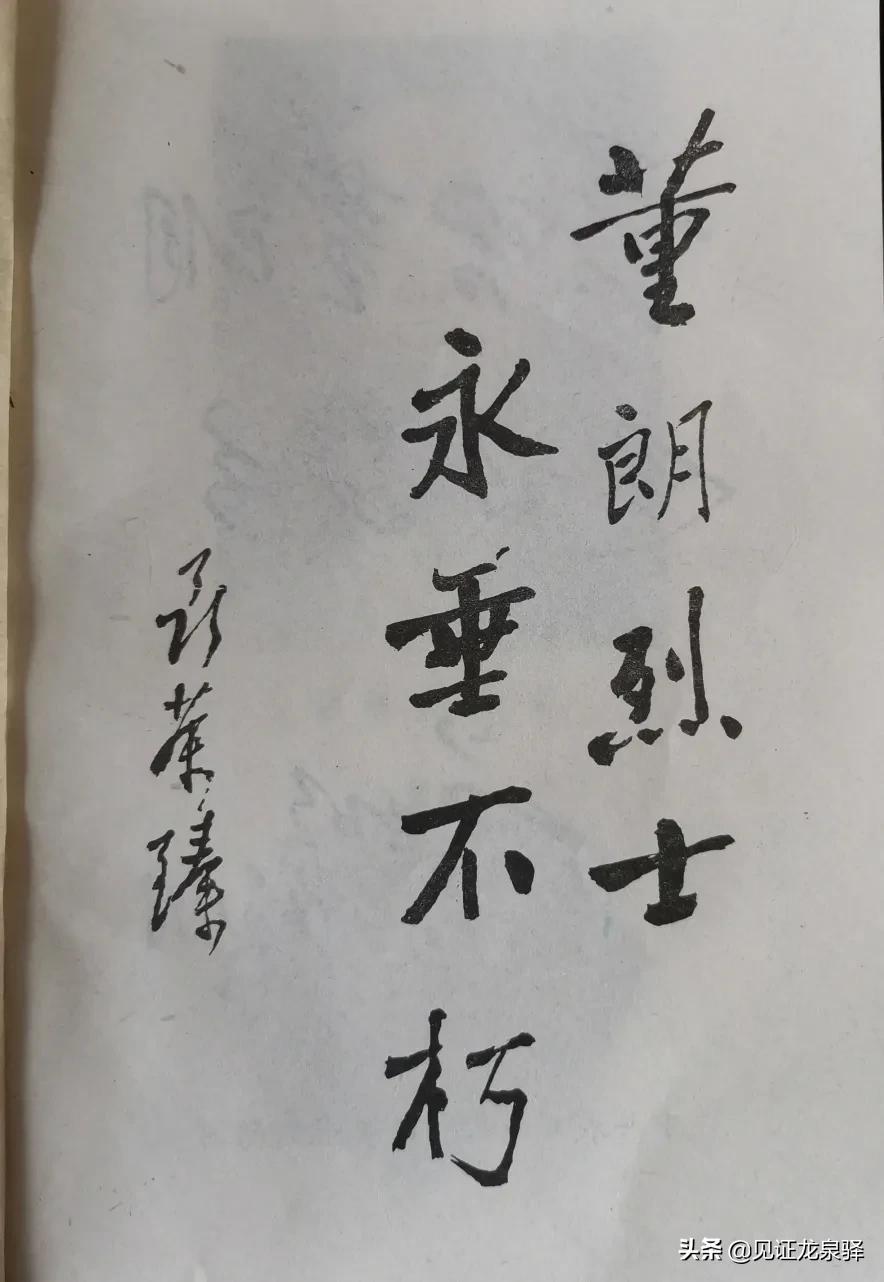 董朗烈士
永垂不朽
聂荣臻
头条 @见证龙泉驿